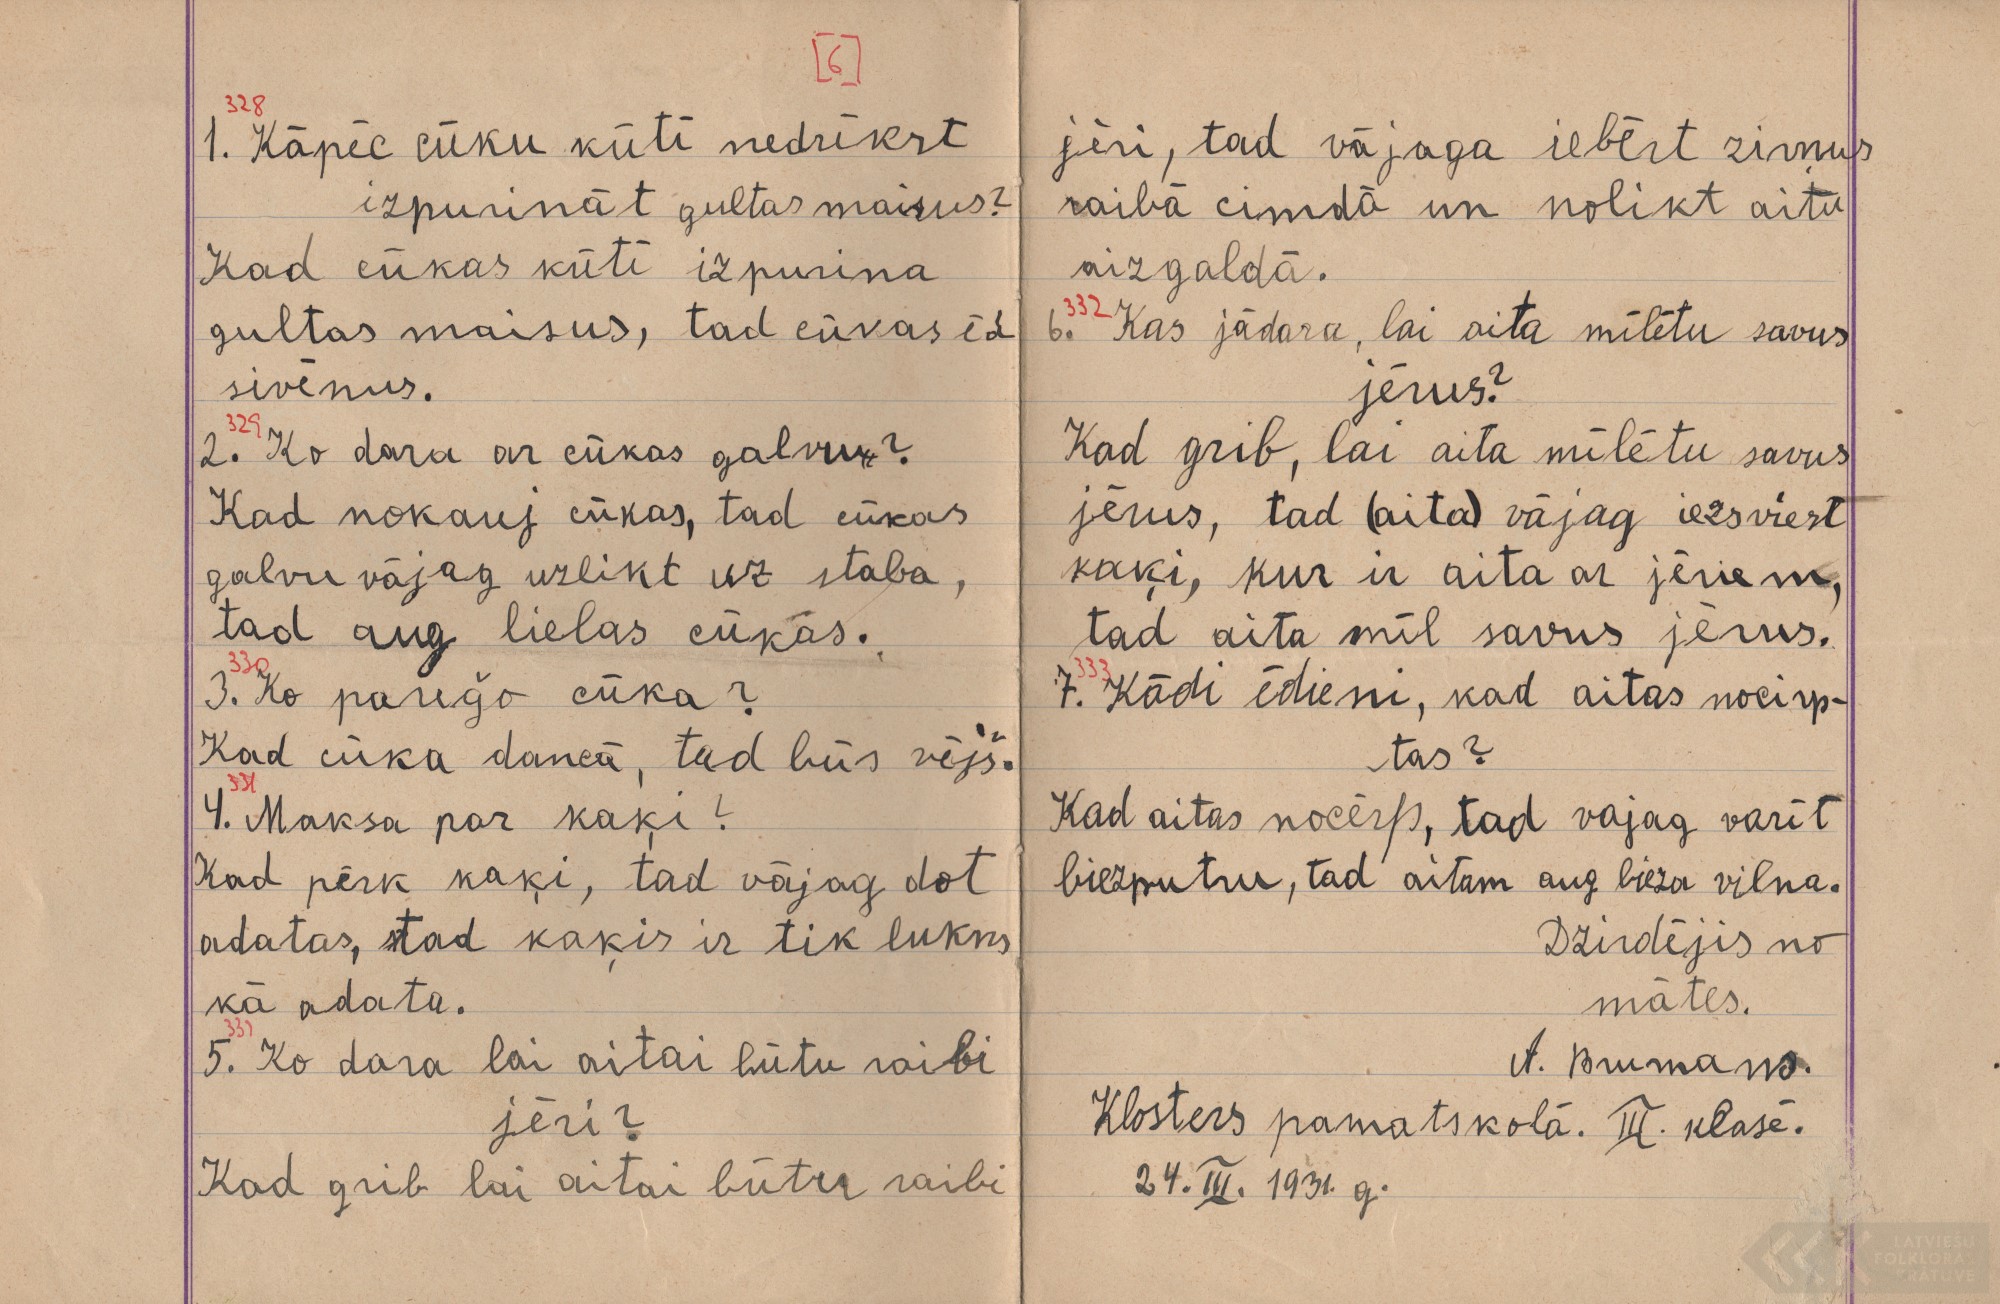 [6]
328
1. Kāpēc cūku kūtī nedrīkst
izpurināt gultas maisus?
Kad cūkas kūtī izpurina
gultas maisus, tad cūkas ēd
sivēnus.
329
2. Ko dara ar cūkas galvu?
Kad nokauj cūkas, tad cūkas
galvu vājag uzlikt uz staba,
tad aug lielas cūkas.
330
3. Ko pareģo cūka?
Kad cūka dancā, tad būs vējš.
331
4. Maksa par kaķi?
Kad pērk kaķi, tad vājag dot
adatas, tad kaķis ir tik lukns
kā adata.
331
5. Ko dara lai aitai būtu raibi
jēri?
Kad grib lai aitai būtu raibi
jēri, tad vājaga iebērt zirņus
raibā cimdā un nolikt aitu
aizgaldā.
332
6. Kas jādara, lai aita mīlētu savus
jērus?
Kad grib, lai aita mīlētu savus
jērus, tad (aita) vājag iezsviest
kaķi, kur ir aita ar jēriem,
tad aita mīl savus jērus.
333
7. Kādi ēdieni, kad aitas nocirp-
tas?
Kad aitas nocērp, tad vajag varīt
biezputru, tad aitam aug bieza vilna.
Dzirdējis no
mātes.
A. Brumans.
Klosters pamatskolā. III. klasē.
24. III. 1931. g.
LATVIEŠU
FOLKLORAS
KRĀTUVE